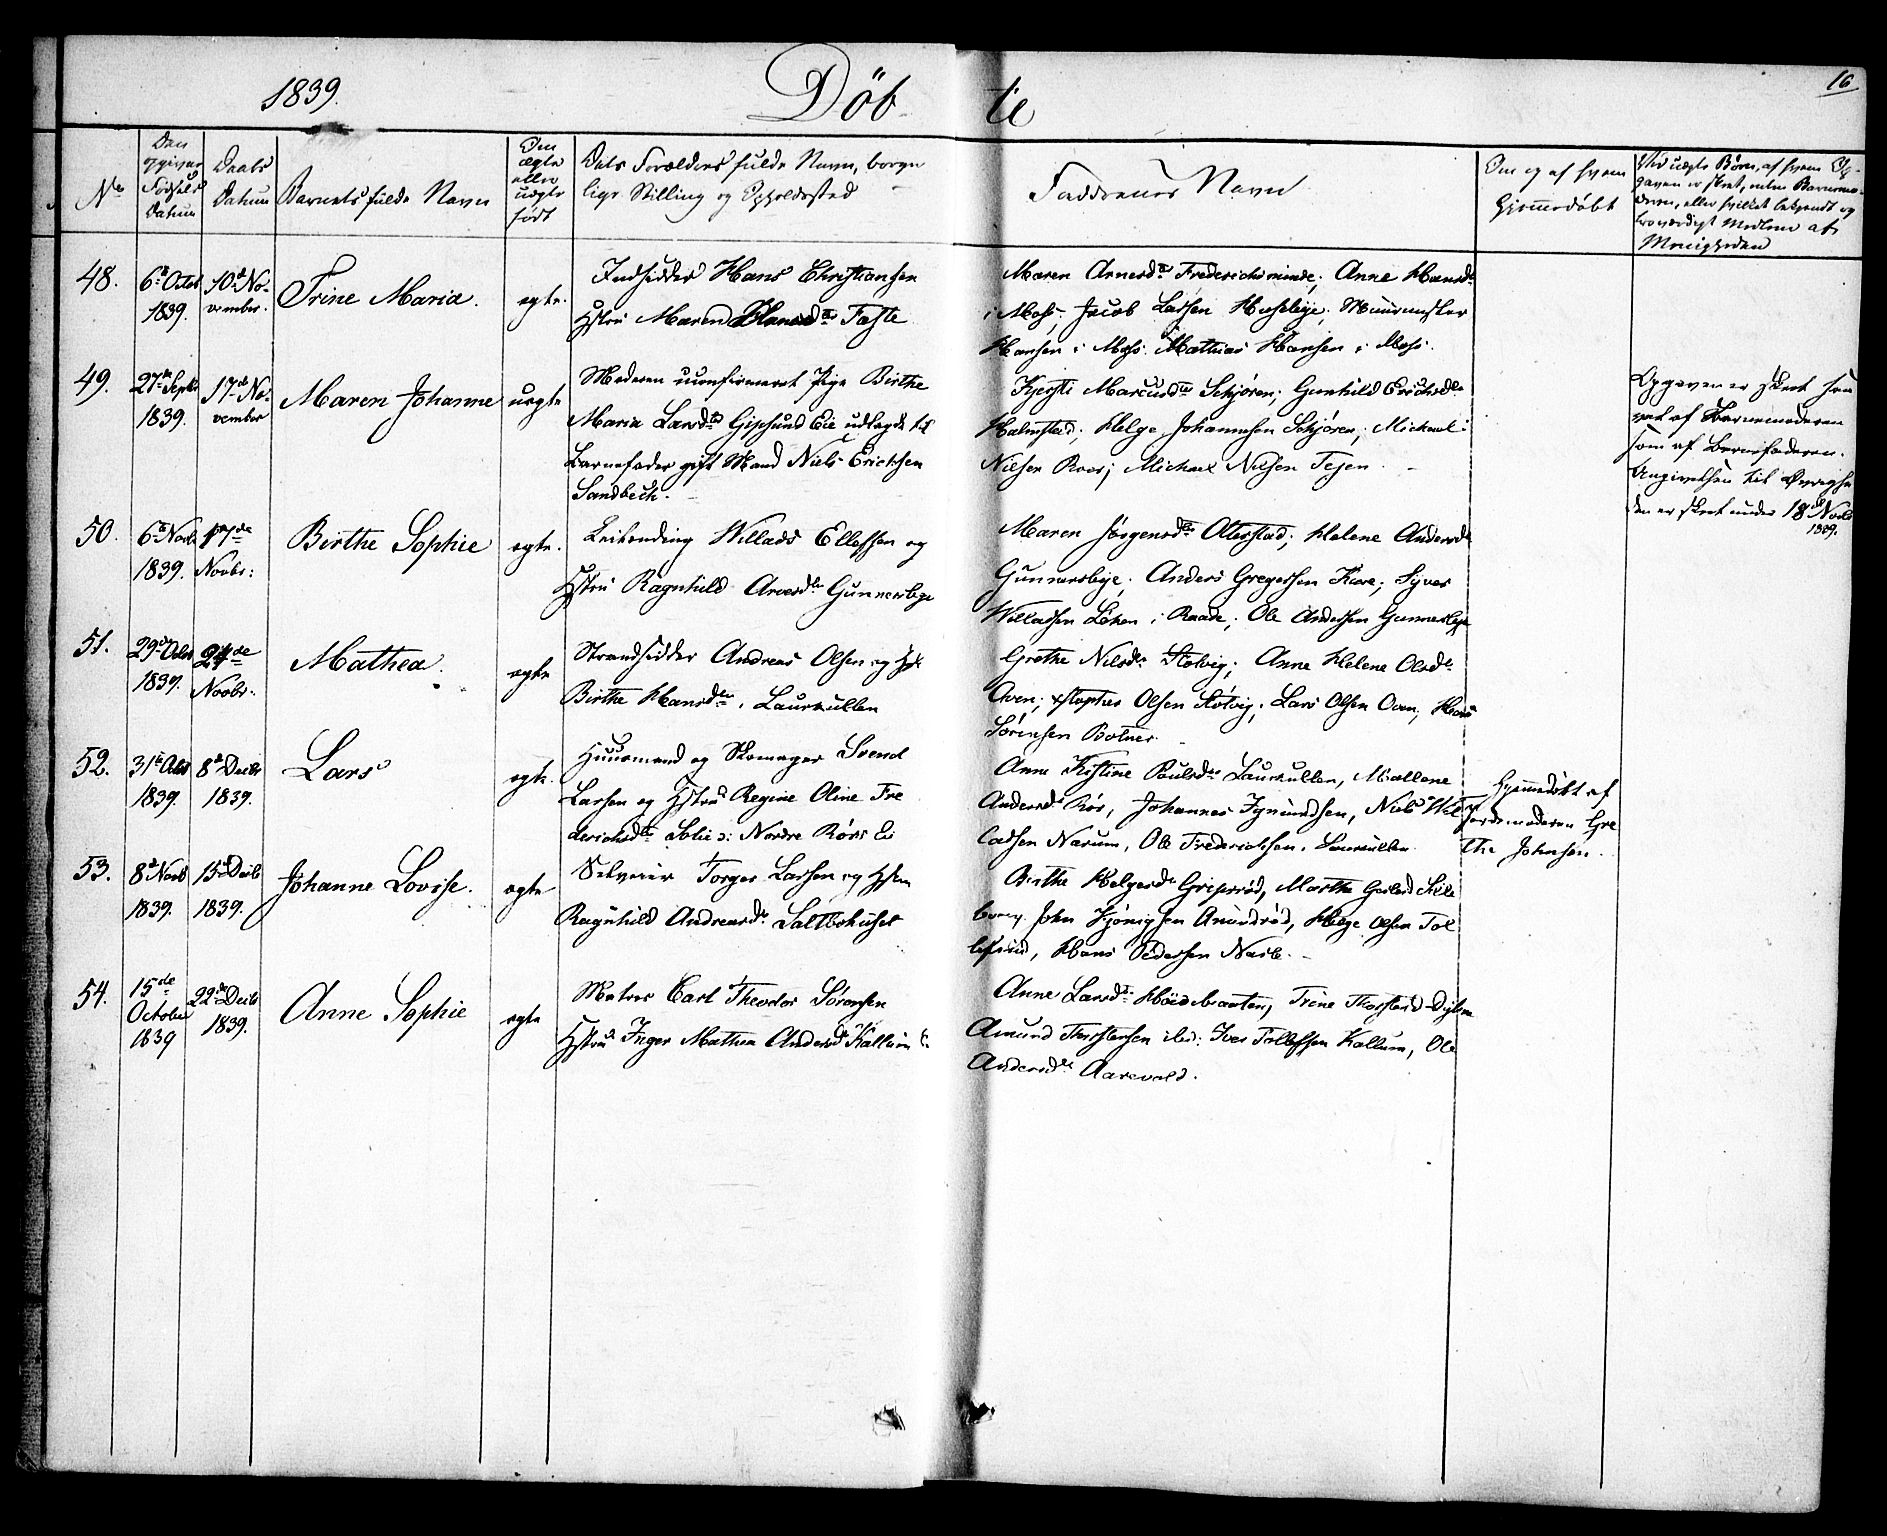 1839.
Döbte
16
No
Den opgivne Födsels Datum
Daabs Datum
Barnets fulde Navn
Om ægte eller uægte födt
Dets Forældres fulde Navn, borgerlige Stilling og Opholdssted
Faddernes Navn
Om og af hvem hjemmedöbt
Ved uægte Börn, af hvem Opgaven er skeet, enten Barnemoderen, eller hvilket bekjendt og troværdigt Medlem af Menigheden
48.
6te Octobr 1839.
10de November.
Trine Maria.
egte.
Indsidder Hans Christiansen
Hstru Maren Hansdtr Faste
Maren Arnesdtr Frederichsminde; Anne Hansdr
i Moss, Jacob Larsen Huseleje; Muurmester
Hansen i Moss. Mathias Hansen i Moss.
49.
27de Septbr 1839.
17de November
Maren Johanne
uegte
Moderen uconfirmeret Pige Birthe
Maria Larsdtr Gipsund Eie udlagde til
Barnefader gift Mand Niels Ericksen
Sandbeck.
Kjersti Marcusdtr Schjören; Gunhild Erichsdtr
Halmstad; Helge Johannesen Schjören; Michael
Nilsen Roer; Michael Nilsen Tejen.
Opgaven er skeet saa
vel af Barnemoderen
som af Barnefaderen.
Angivelsen til Övrighe
den er skeet under 18de Novbr
1839.
50.
6te Novbr 1839.
17de Novbr:
Birthe Sophie
egte.
Leilending Willads Ellefsen og
Hstru Ragnhild Arnesdtr Gunnersbye
Maren Jörgensdtr Oterstad; Helene Andersdr
Gunnersbye; Anders Gregersen Kure; Syver
Willadsen Löken i Raade; Ole Andersen Gunnersbye
51.
29de Octbr 1839.
24de Novbr:
Mathea.
egte
Strandsidder Andreas Olsen og Hst
Birthe Hansdtr, Laurkullen
Grethe Nilsdr Stotvig; Anne Helene Olsdr
Oven; Xstopher Olsen Stotvig; Lars Olsen Oven, Hans
Sörensen Botner.
52.
31te Octbr 1839.
8de Decbr 1839.
Lars
egte.
Huusmand og Skomager Svend
Larsen og Hstru Regine Oline Fre
derichsdtr Solie i Nordre Rörs Ei
Anne Kistine Poulsdr Laurkullen, Mallene
Andersdr Rör, Johannes Igmundsen, Niels Wil
ladsen Narum, Ole Frederichsen, Laurkullen
Hjemmedöbt af
Jordemoderen Gre
the Johnsen.
53.
8de Novbr 1839.
15de Decbr 1839.
Johanne Lovise.
egte
Selveier Torger Larsen og Hstru
Ragnhild Andreasdr Saltbohuset
Birthe Helgesdr Gripsröd, Marthe
borg. John Kjönigsen Amundröd, Helge Olsen Tol
lefsrud, Hans Pedersen
54.
15de October 1839
22de Decbr 1839.
Anne Sophie
egte
Matros Carl Theodor Sörensen
Hstru Inger Mathea Andersdr Kallum
Anne Larsdtr Höidebraaten, Trine
Amund Thorstensen ibid: Iver Tollefsen Kallum, Ole
Andersdtr Aarevold.